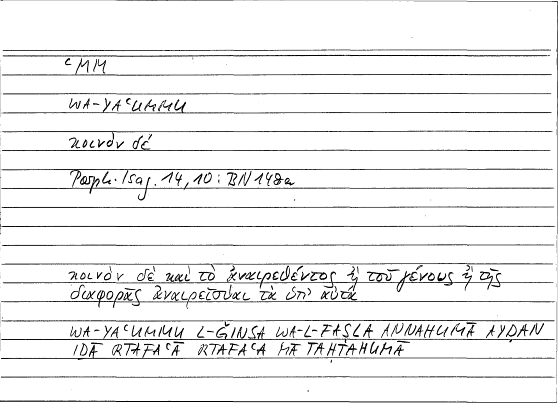 ʿMM
WA-YAʿUMMU
κοινὸν δέ
Porph. Isag. 14,10: BN 148a
κοινὸν δὲ καὶ τὸ ἀναιρεθέντος ἢ τοῦ γένους ἢ τῆς
διαφορᾶς ἀναιρεῖσθαι τὰ ὑπ' αὐτά
WA-YAʿUMMU L-ǦINSA WA-L-FAṢLA ANNAHUMĀ AYḌAN
IḎĀ RTAFAʿĀ RTAFAʿA MĀ TAḤTAHUMĀ